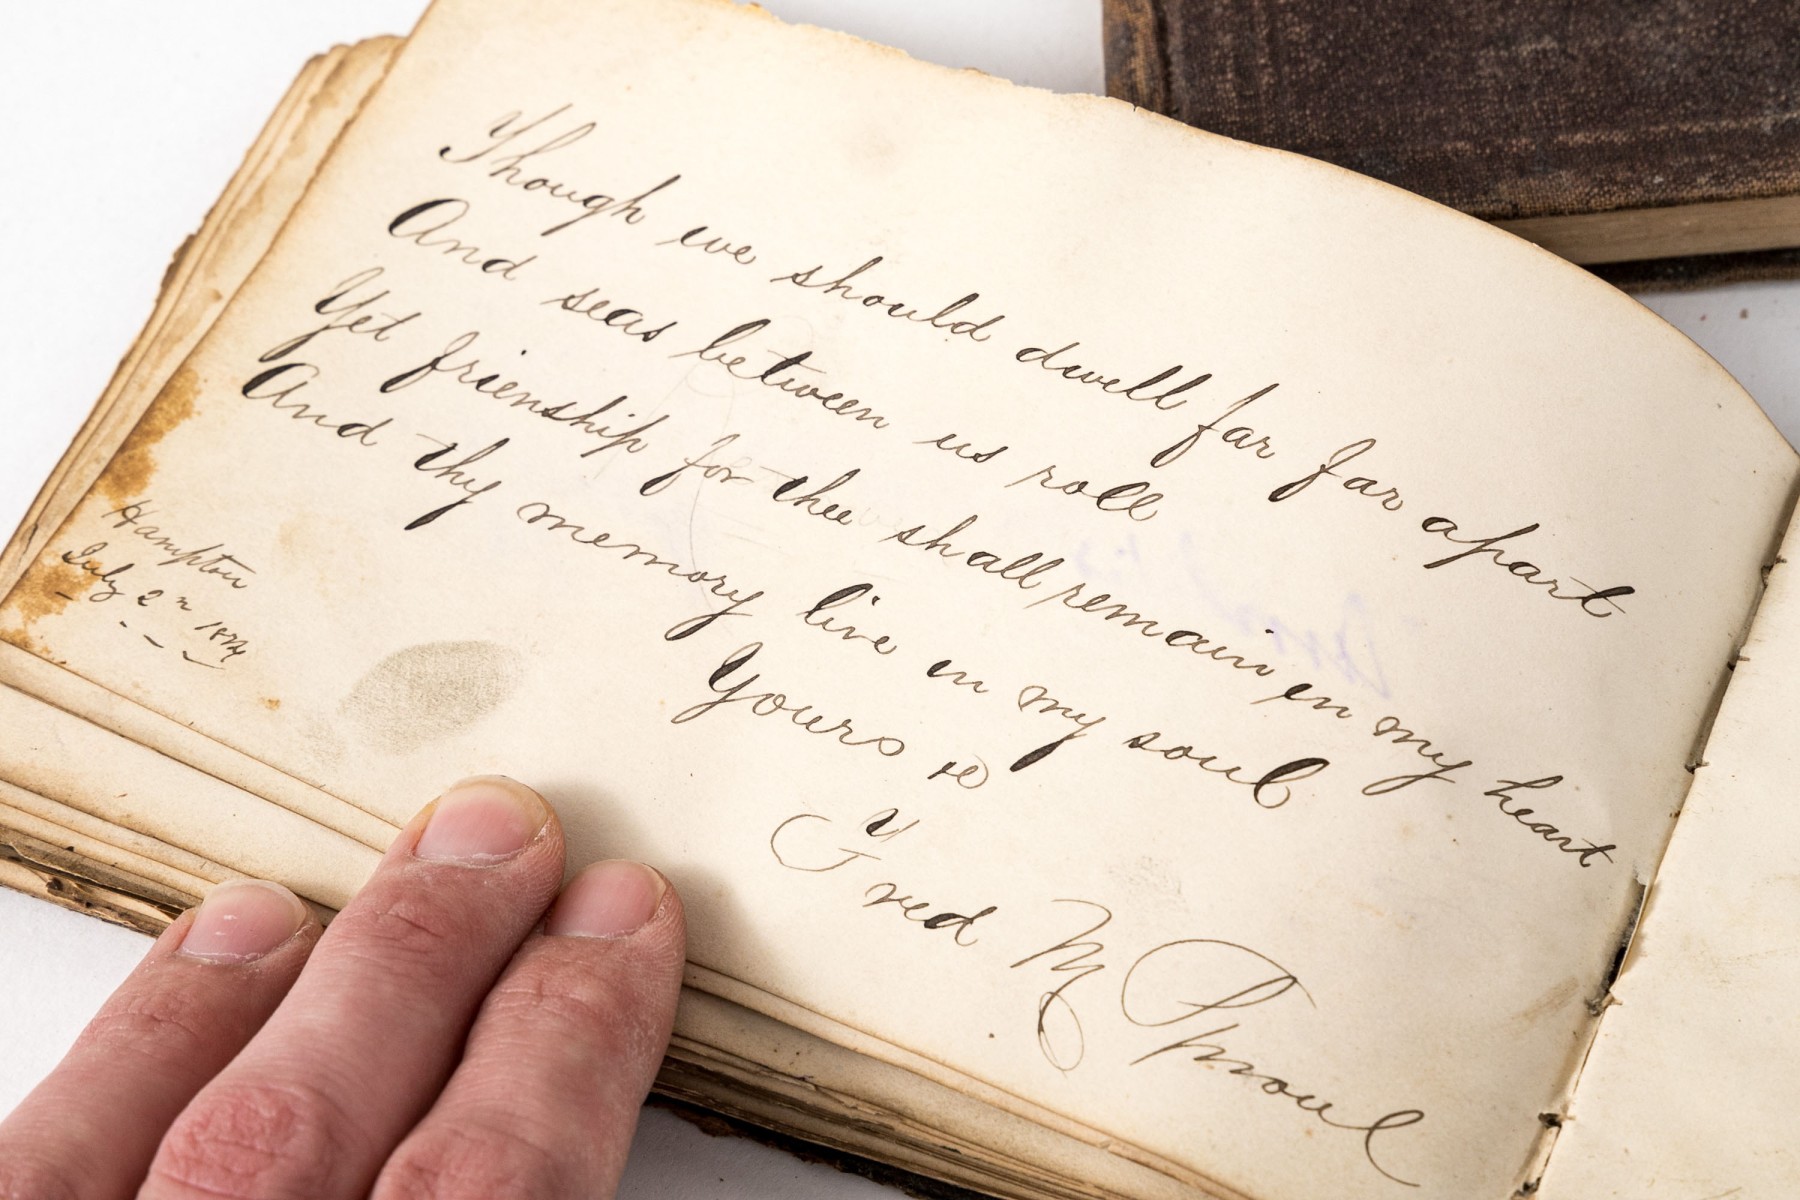 Though we should dwell far far apart
And seas between us roll
Yet frienship for thee shall remain in my heart
And thy memory live in my soul
Yours &c
Fred M Sproul
Hampton
July 2n 1874